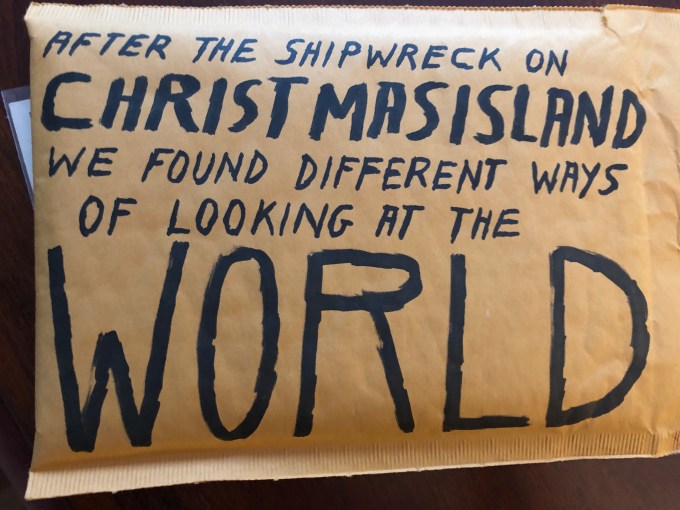 AFTER THE SHIPWRECK ON
CHRISTMASISLAND
WE FOUND DIFFERENT WAYS
OF LOOKING AT THE
WORLD